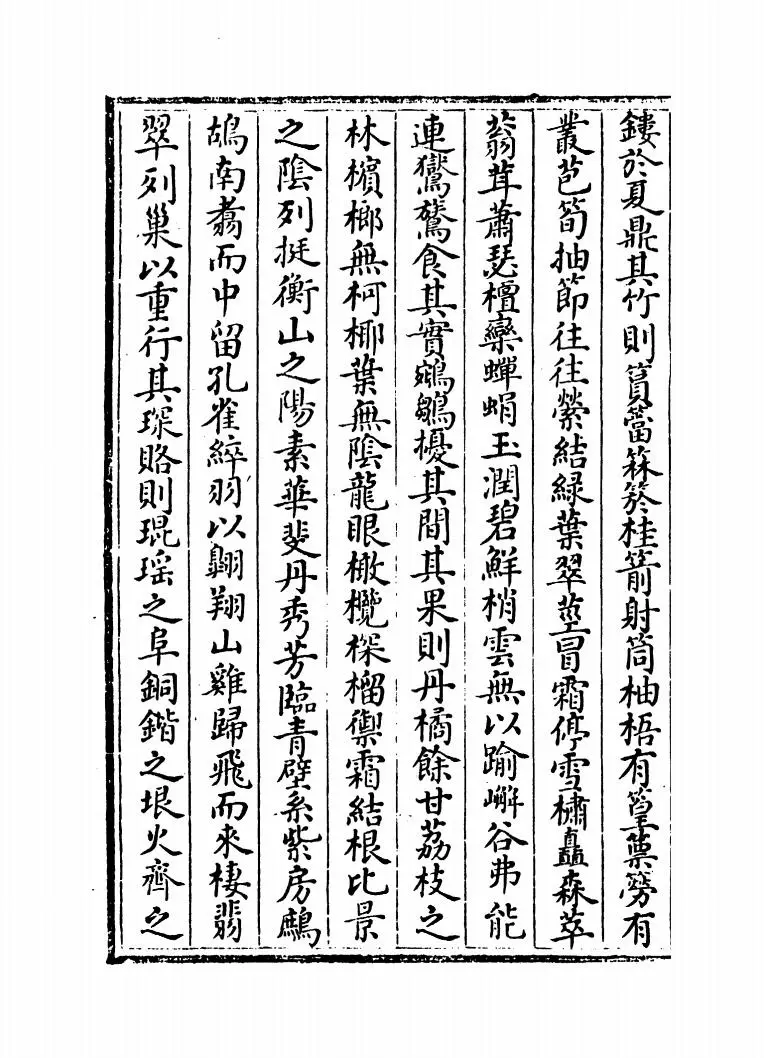 鏤於夏鼎其竹則篔簹箖箊桂箭射筒柚梧有篁篻簩有
叢苞筍抽節往往縈結綠葉翠莖冒霜停雪橚矗森萃
蓊茸蕭瑟檀欒蟬蜎玉潤碧鮮梢雲無以踰嶰谷弗能
連鸑鷟食其實鵷鶵擾其間其果則丹橘餘甘荔枝之
林檳榔無柯椰葉無陰龍眼橄欖棎榴禦霜結根比景
之陰列挺衡山之陽素華斐丹秀芳臨青壁系紫房鷓
鴣南翥而中留孔雀綷羽以翺翔山雞歸飛而來棲翡
翠列巢以重行其琛賂則琨瑤之阜銅鍇之垠火齊之